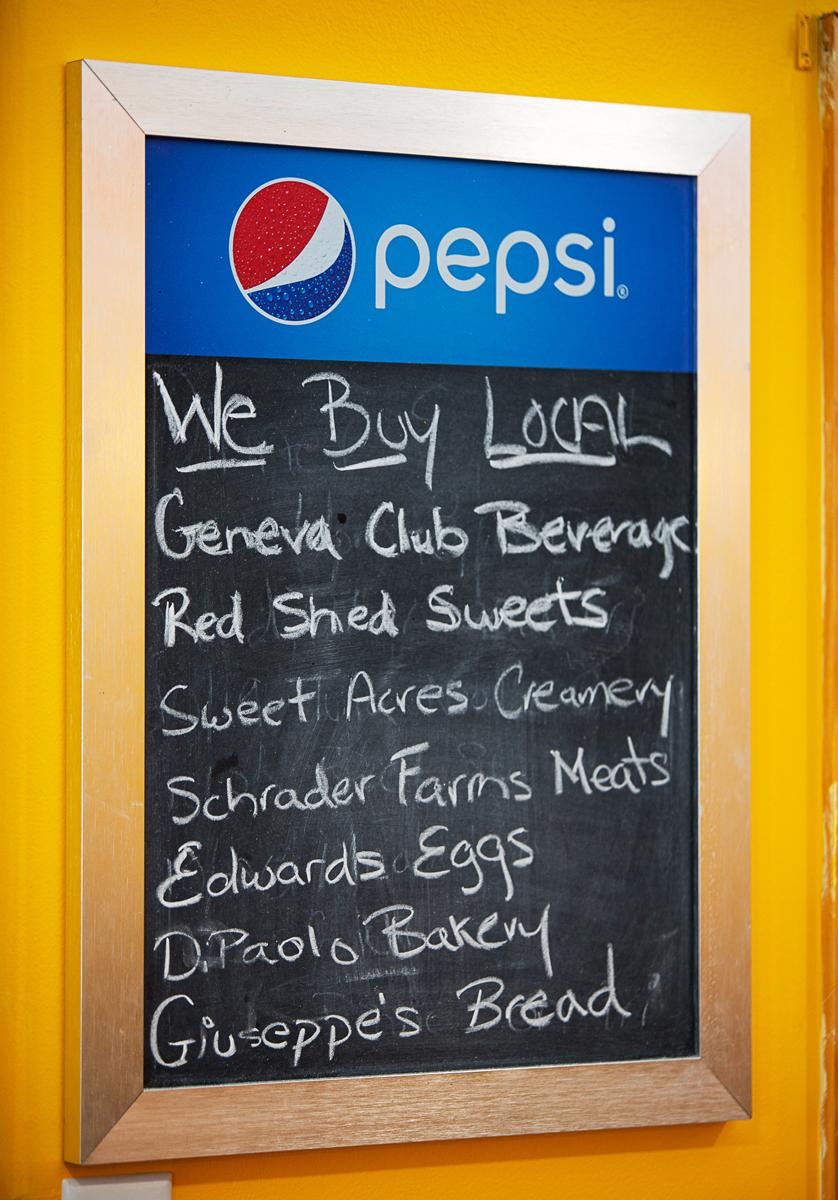 pepsi®
We Buy LOCAL
Geneva Club Beverage
Red Shed Sweets
Sweet Acres Creamery
Schrader Farms Meats
Edwards Eggs
D.Paolo Bakery
Giuseppe's Bread